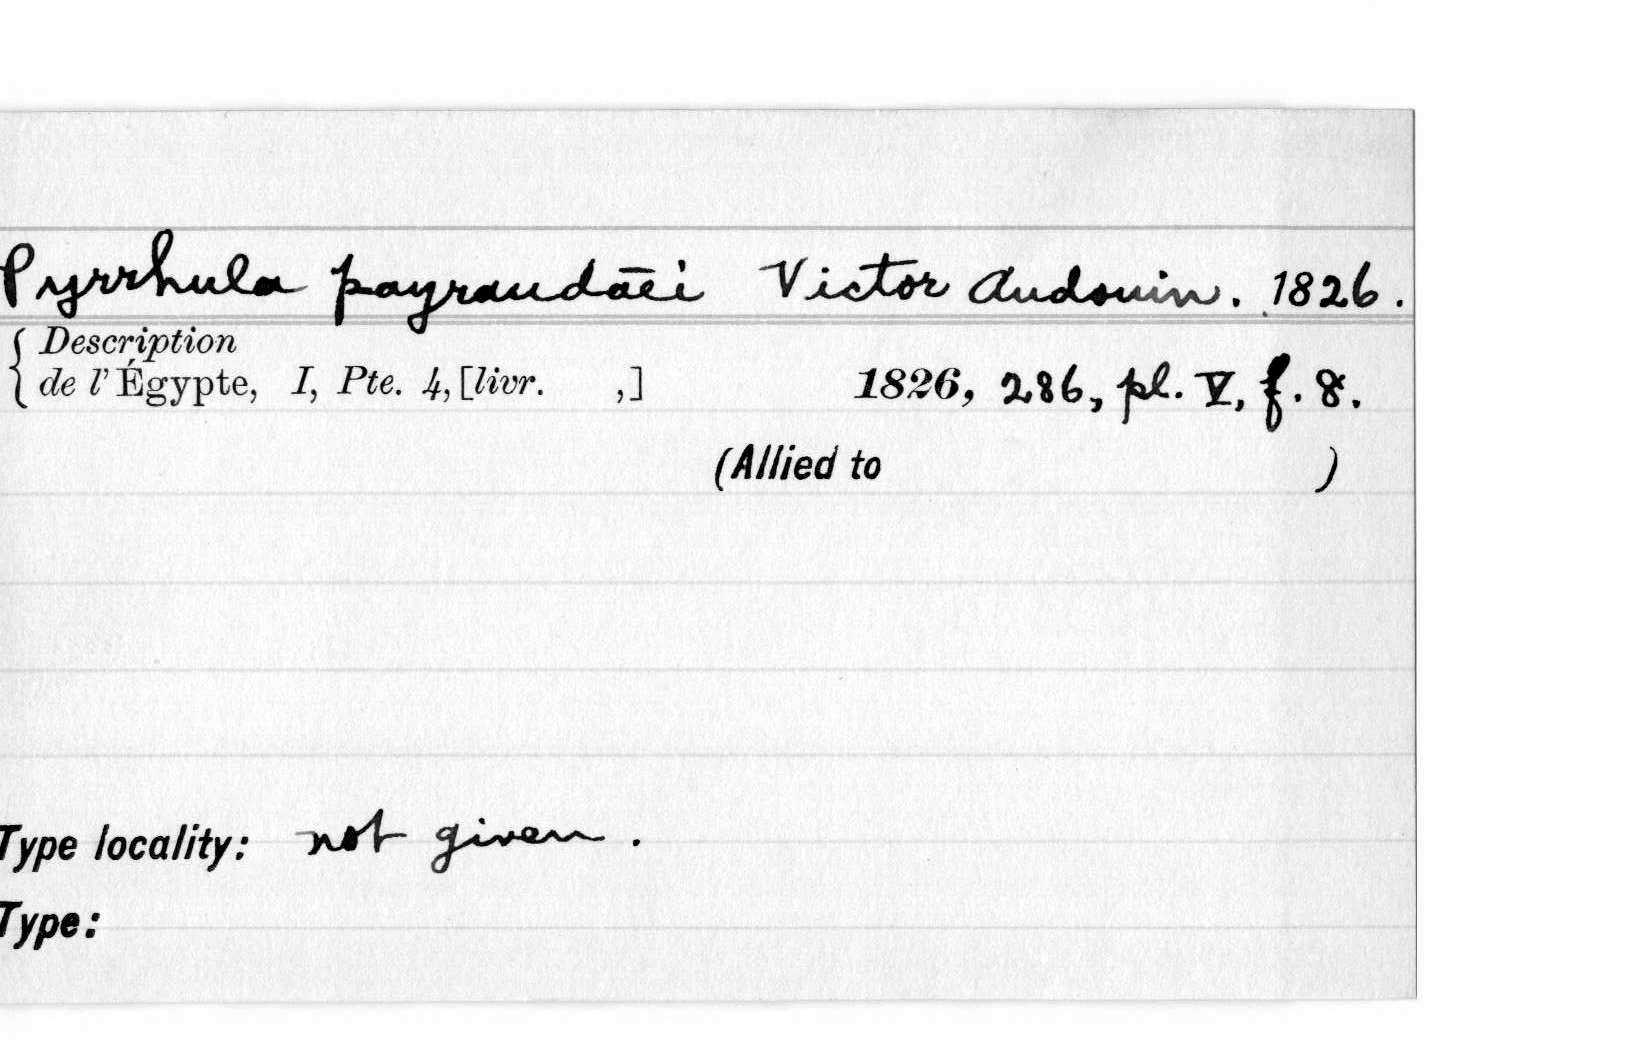 Pyrrhula payraudāei Victor Audouin. 1826.
Description
de l'Égypte, I, Pte. 4, [livr. ,] 1826, 286, pl. V, f. 8.
(Allied to )
Type locality: not given.
Type: